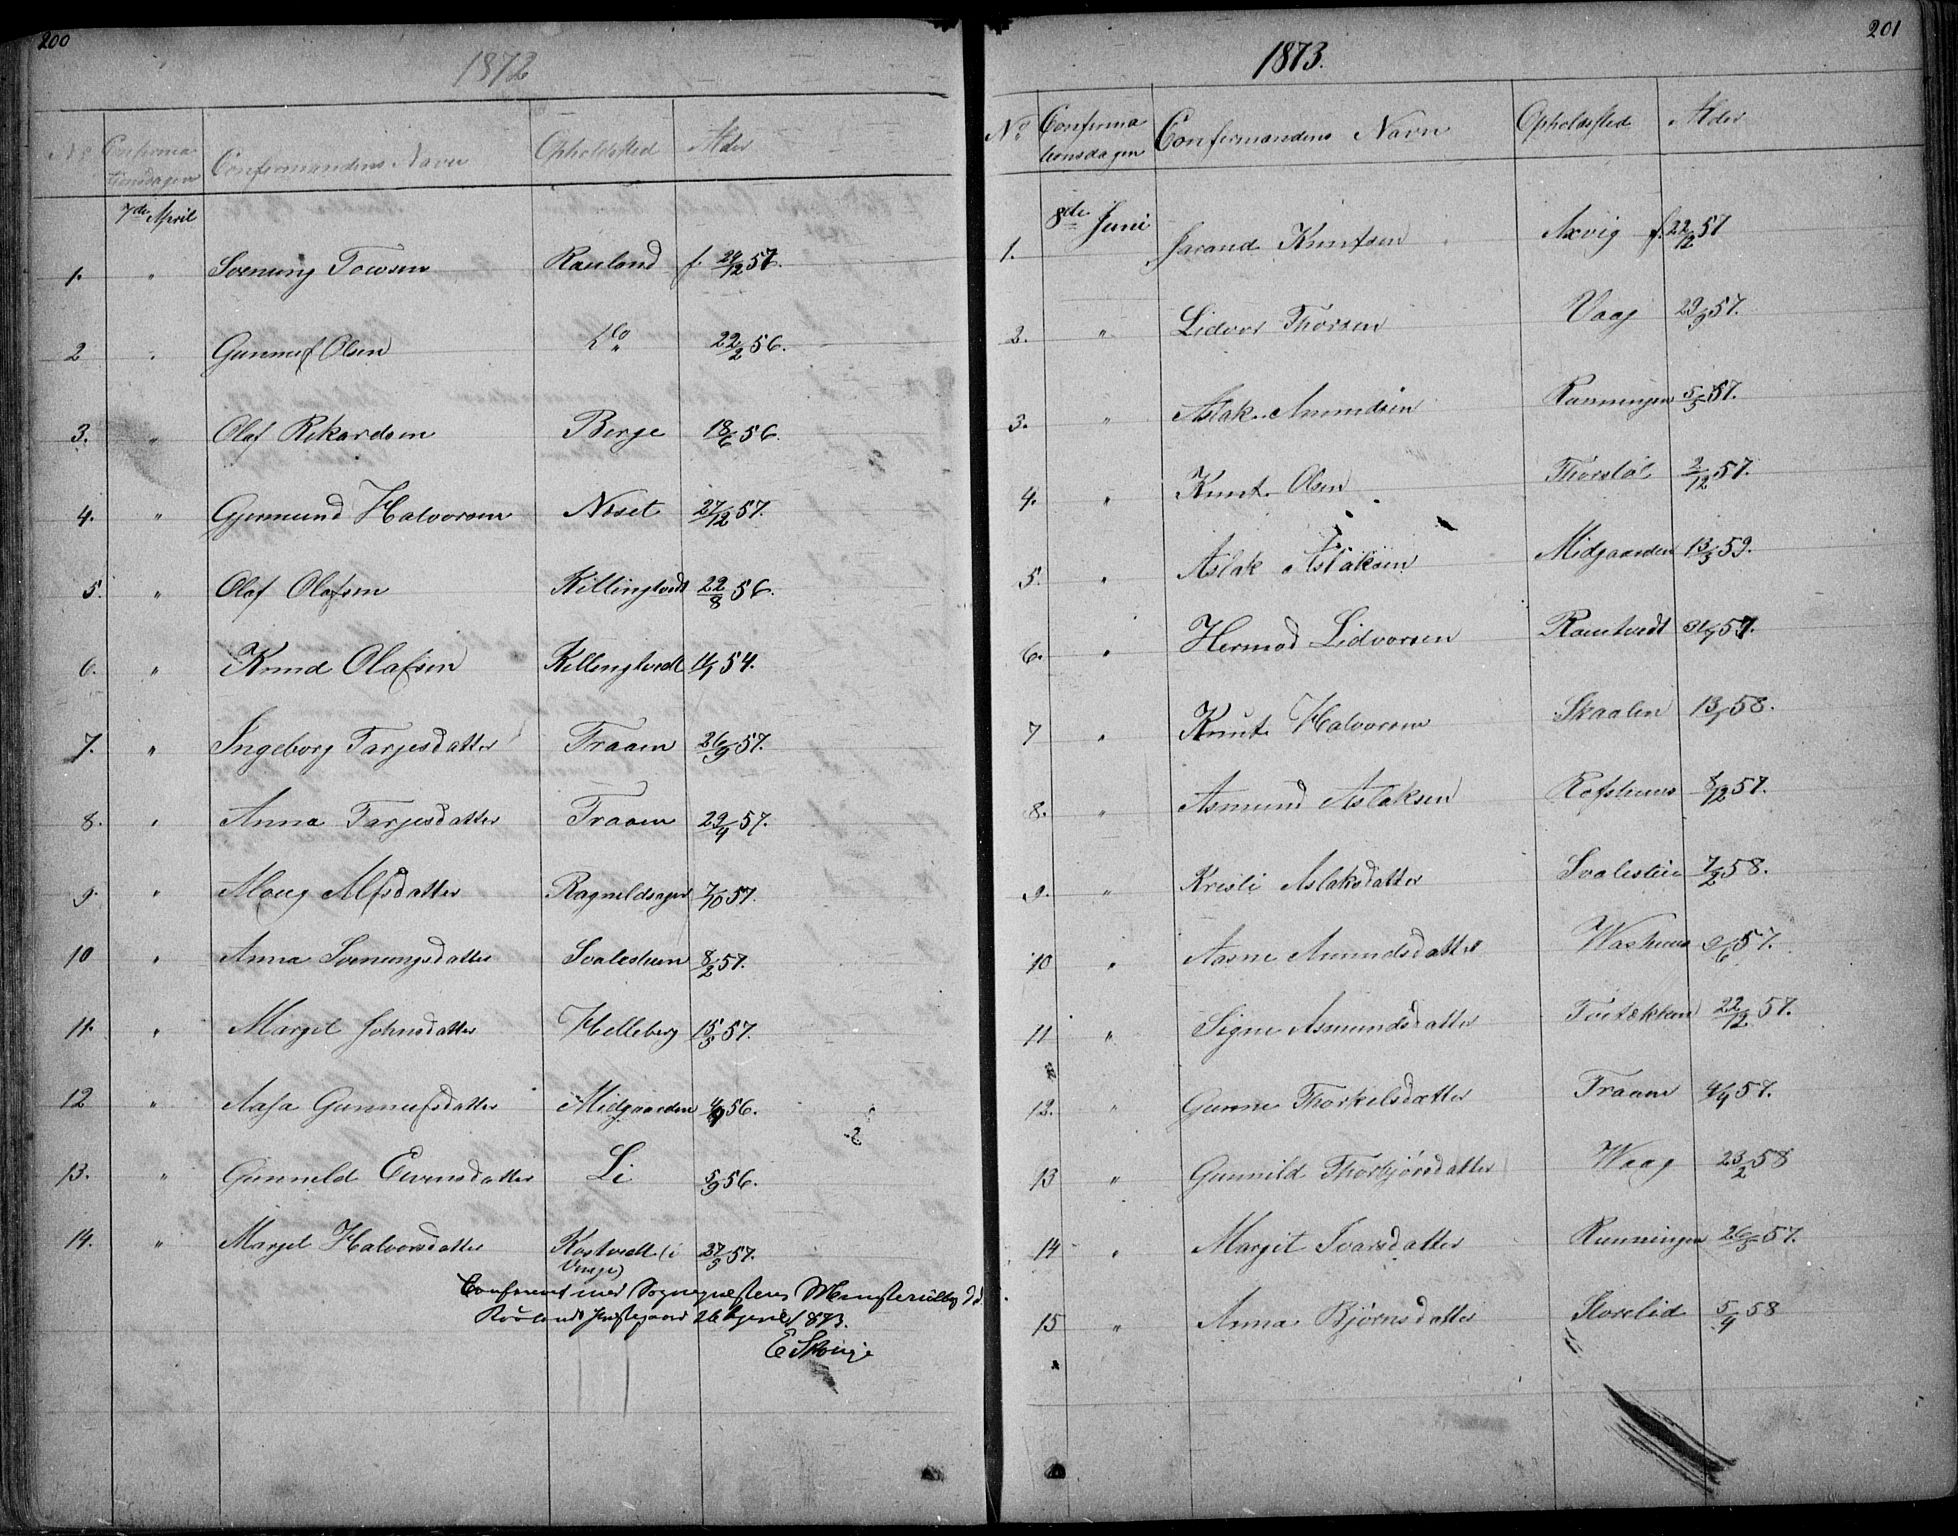 200
1872
No Confirma Confirmandens Navn Opholdsted Alder
tionsdagen
7de April
1. " Svenung Tovsen Rauland f. 24/12 57.
2 " Gunnuf Olsen Do " 22/2 56.
3. " Olaf Rikardsen Berge 18/6 56.
4. " Gjermund Halvorsen Neset 27/12 57.
5. " Olaf Olafsen Killingtvedt 22/8 56.
6. " Knud Olafsen Killingtvedt 54.
7. " Ingeborg Tarjesdatter Traaen 26/9 57.
8. " Anna Tarjesdatter Traaen 29/9 57.
9. " Alfsdatter Ragnildsager 7/10 57.
10 " Anna Svenungsdatter Svalestuen 8/2 57.
11. " Margit Johnsdatter Helleberg 15/5 57.
12 " Aase Gunnufsdatter Midgaarden 4/9 56.
13. " Gunnild Eivensdatter Li 5/9 56.
14. " Margit Halvorsdatter Kostvedt (i 27/5 57.
Vinje)
Conferert med Sogneprestens Ministerialbog
Raulands Prestegaard 26 1873.
E Skouge
201
1873.
No Confirma Confirmandens Navn Opholdsted Alder
tionsdagen
8de Juni
1. Jarand Knutsen Axvig f. 22/12 57
2. " Lidvor Thorsen Vaag 29/9 57.
3. " Aslak Amundsen Rønningen 5/5 57.
4. " Knut Olsen Thorsløl 2/12 57.
5. " Aslak Aslaksen Midgaarden 13/5 59.
6. " Hermod Lidvorsen Rauntvedt 57.
7 " Knut Halvorsen Skaalen 58.
8. " Asmund Aslaksen Rofshuus 8/12 57.
9. " Kristi Aslaksdatter Svalestuen 7/2 58.
10 " Aasne Amundsdatter Washuus 2/6 57.
11 " Signe Asmundsdatter Tvitækken 22/12 57.
12. " Gunne Thorkelsdatter Traaen 4/9 57.
13 " Gunnild Thorbjørsdatter Waag 23/2 58
14 " Margit Ivarsdatter Rønningen 26/5 57.
15 " Anna Bjørnsdatter Storelid 5/4 58